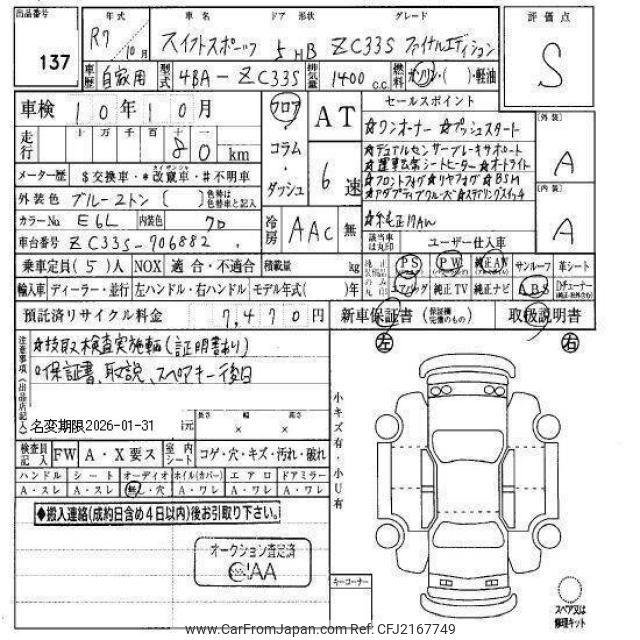 出品番号 137
年式 R7 10月
車名 スイフトスポーツ
ドア 形状 5 HB
グレード ZC33S ファイナルエディション
評価点 S
車歴 自家用
型式 4BA-ZC33S
排気量 1400 c.c.
燃料 ガソリン・( )・軽油
車検 10年10月
フロア・コラム・ダッシュ
AT 6速
セールスポイント
☆ワンオーナー ☆プッシュスタート
☆デュアルセンサーブレーキサポート
シートヒーター ☆オートライト
☆フロントフォグ ☆リヤフォグ ☆BSM
☆アダプティブクルーズ ☆ステアリングスイッチ
☆純正17AW
[外装] A
[内装] A
走行 十 万 千 百 十 一 80 km
メーター歴 $交換車・*改竄車・#不明車
カイザンシャ
外装色 ブルー2トン ( ) 色替は色替車と記入
カラーNo E6L 内装色 クロ
冷房 AAC 無
車台番号 ZC33S-706882
該当車は丸印 ユーザー仕入車
乗車定員(5)人 NOX 適合・不適合 積載量 kg
PS PW 純正AW サンルーフ 革シート
輸入車 ディーラー・並行 左ハンドル・右ハンドル モデル年式( )年
エアバッグ 純正TV 純正ナビ ABS
預託済リサイクル料金 7,470円
新車保証書 (保証継完備のもの) 取扱説明書
注意事項(出品店記入)
☆技取ス検査実施車輌(証明書あり)
◦保証書、取説、スペアキー後日
名変期限2026-01-31
長さ × 幅 × 高さ
検査員記入 FW A・X要ス 室内シート コゲ・穴・キズ・汚れ・破れ
ハンドル シート オーディオ ホイル(カバー) エアロ ドアミラー
A・スレ A・スレ 無・穴 A・ワレ A・ワレ A・ワレ
◆搬入連絡(成約日含め4日以内)後お引取り下さい。
オークション査定済
CIAA
小キズ有・小U有
左
右
キーコーナー
スペア又は修理キット
www.CarFromJapan.com Ref: CFJ2167749